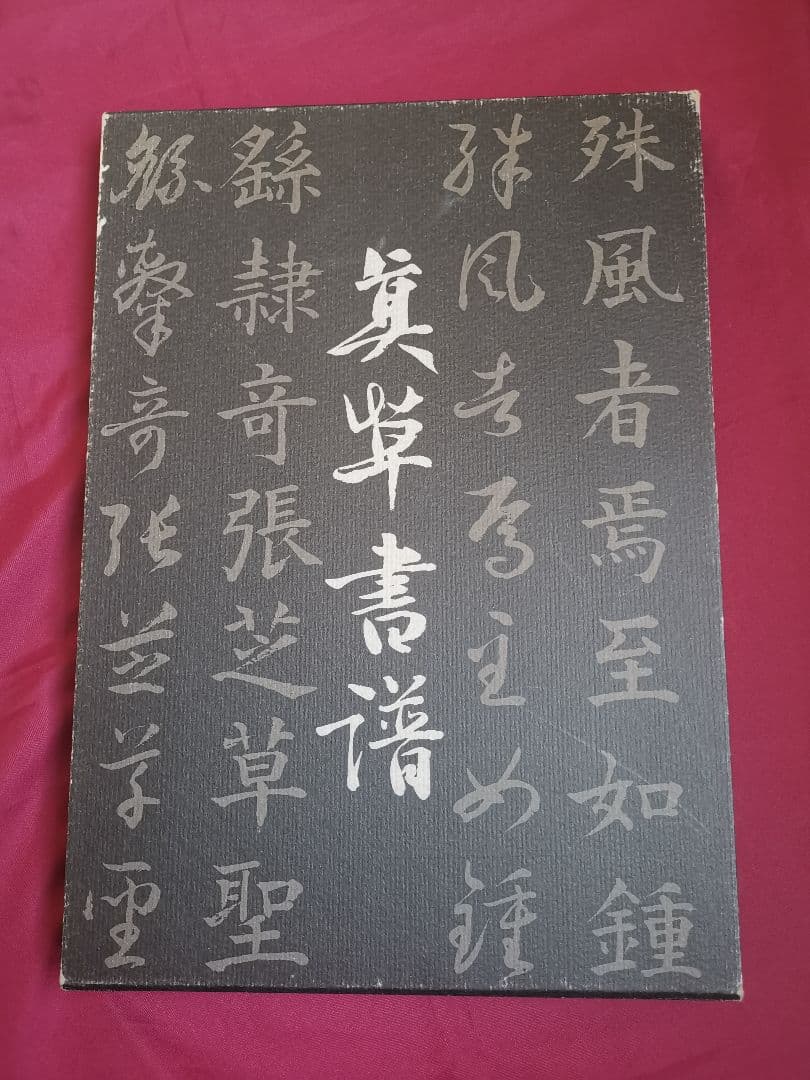 殊風者焉至如鍾
殊風者焉至如鍾
真草書譜
繇隷奇張芝草聖
繇隷奇張芝草聖